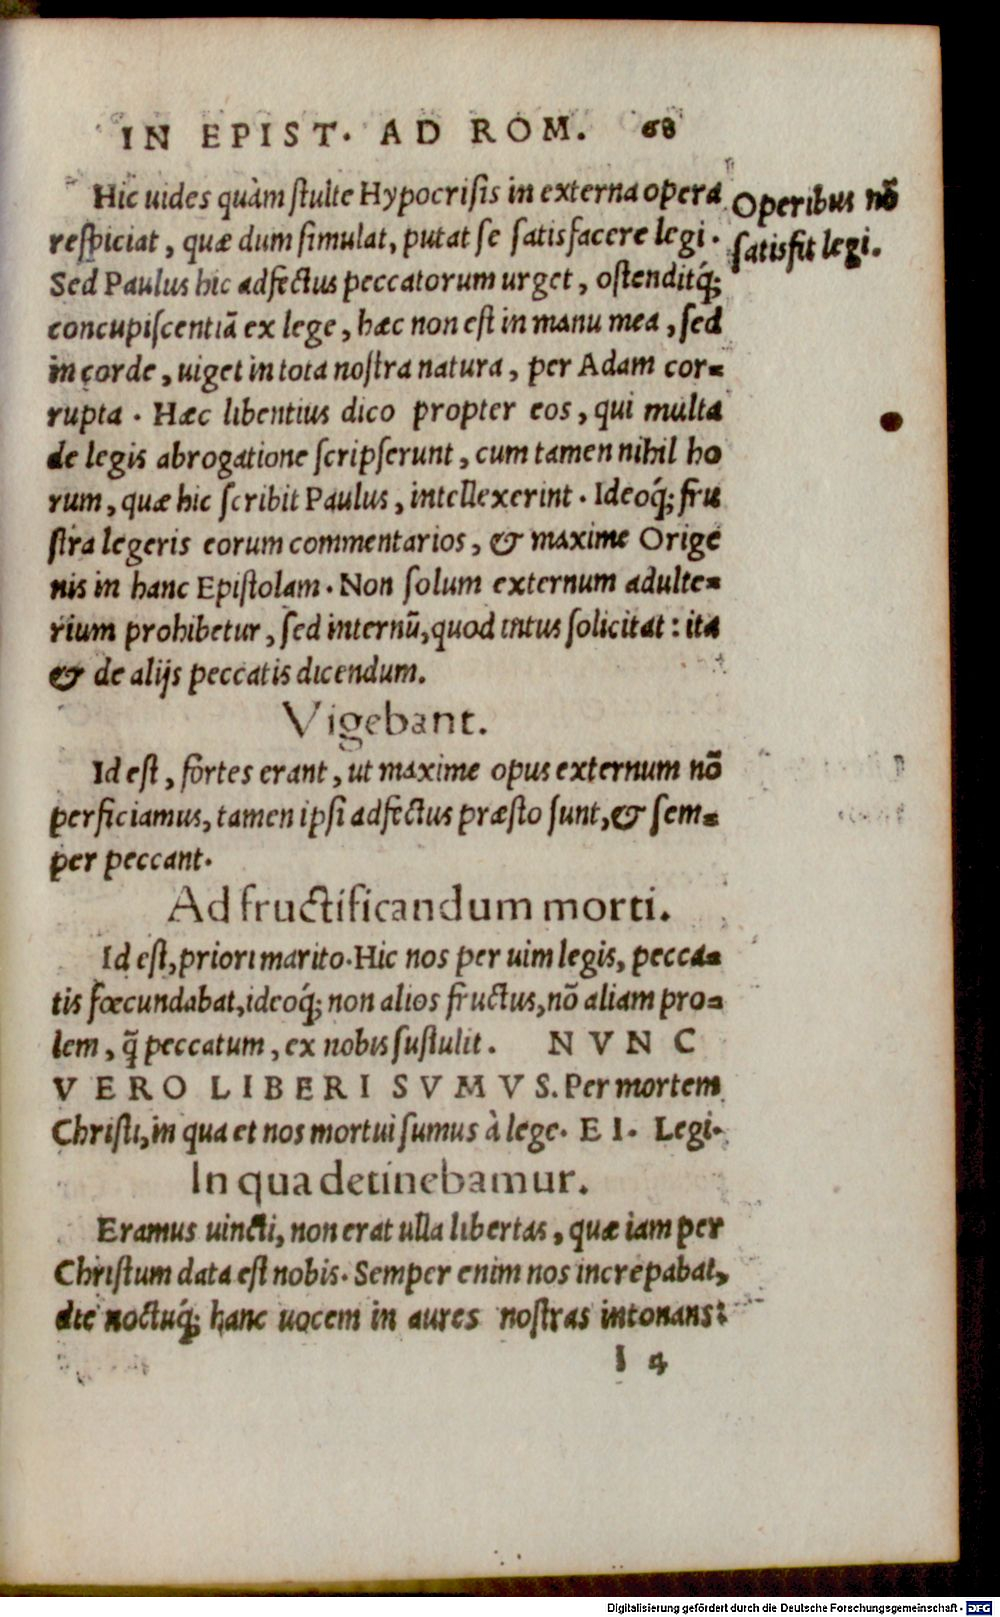 IN EPIST. AD ROM. 68
Hic uides quàm stulte Hypocrisis in externa opera
respiciat, quæ dum simulat, putat se satisfacere legi.
Operibus nõ
satisfit legi.
Sed Paulus hic adfectus peccatorum urget, ostenditq́;
concupiscentiã ex lege, hæc non est in manu mea, sed
in corde, uiget in tota nostra natura, per Adam cor-
rupta. Hæc libentius dico propter eos, qui multa
de legis abrogatione scripserunt, cum tamen nihil ho
rum, quæ hic scribit Paulus, intellexerint. Ideoq́; fru
stra legeris eorum commentarios, & maxime Orige
nis in hanc Epistolam. Non solum externum adulte-
rium prohibetur, sed internũ, quod intus solicitat: ita
& de alijs peccatis dicendum.
Vigebant.
Id est, fortes erant, ut maxime opus externum nõ
perficiamus, tamen ipsi adfectus præsto sunt, & sem-
per peccant.
Ad fructificandum morti.
Id est, priori marito. Hic nos per uim legis, pecca-
tis fœcundabat, ideoq́; non alios fructus, nõ aliam pro-
lem, q̃ peccatum, ex nobis sustulit. NVNC
VERO LIBERI SVMVS. Per mortem
Christi, in qua et nos mortui sumus à lege. EI. Legi.
In qua detinebamur.
Eramus uincti, non erat ulla libertas, quæ iam per
Christum data est nobis. Semper enim nos increpabat,
die noctuq́; hanc uocem in aures nostras intonans:
I 4
Digitalisierung gefördert durch die Deutsche Forschungsgemeinschaft - DFG